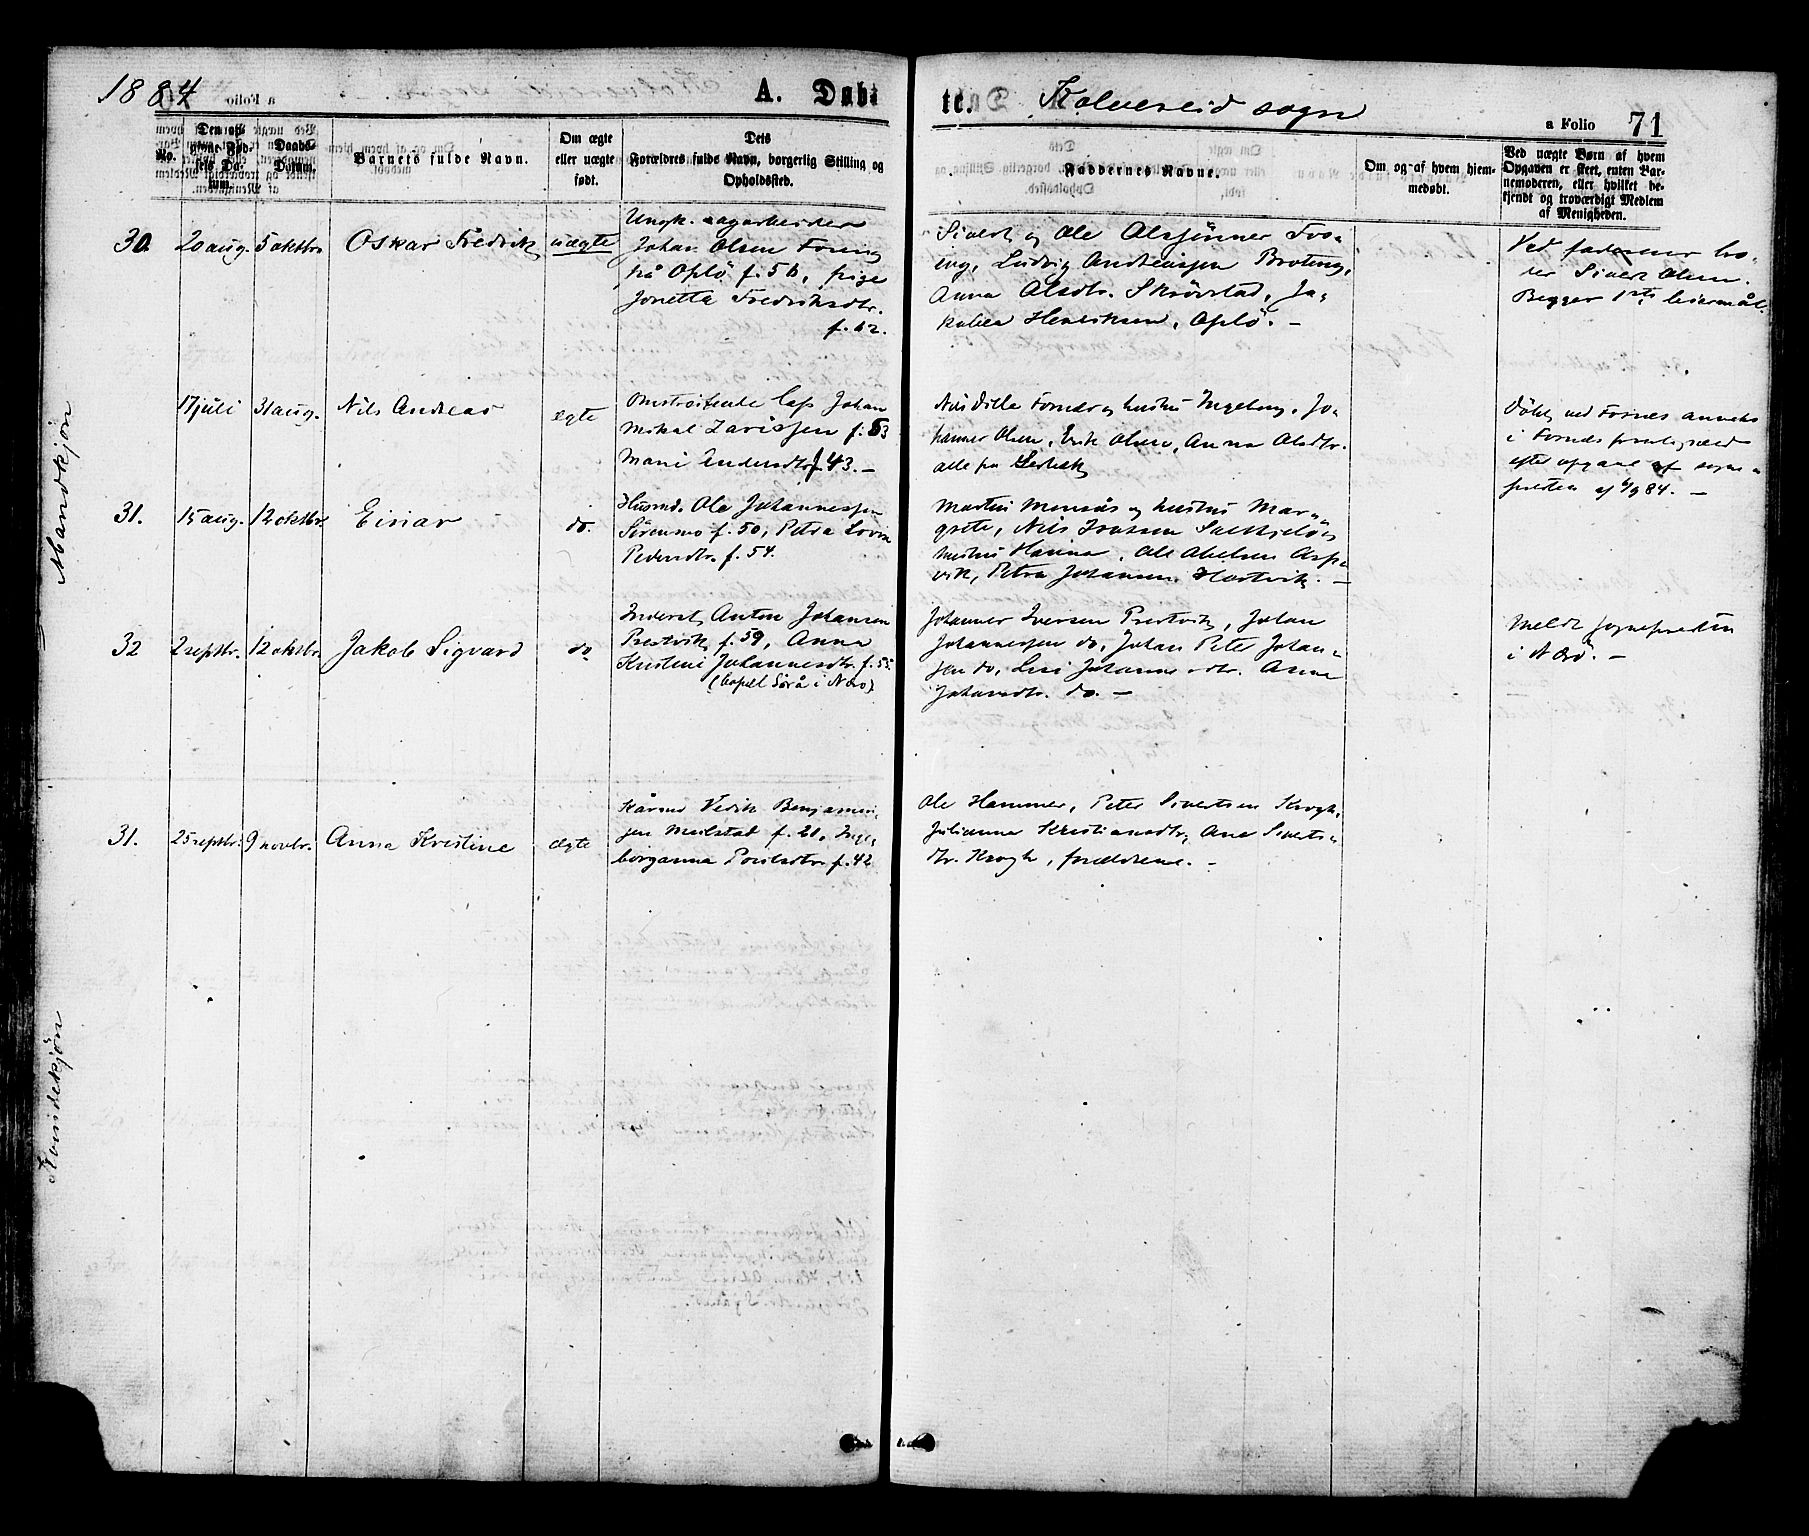 1884
a Folio
A. Døbte.
Kolvereid sogn
a Folio 71
No.
Den op-
givne Fød-
sels Da-
tum.
Daabs-
Datum.
Barnets fulde Navn.
Om ægte
eller uægte
født.
Dets
Forældres fulde Navn, borgerlig Stilling og
Opholdssted.
Faddernes Navne.
Om og af hvem hjem-
medøbt.
Ved uægte Børn af hvem
Opgaven er skeet, enten Bar-
nemoderen, eller hvilket be-
kjendt og troværdigt Medlem
af Menigheden.
Mandkjøn
30. 20 aug. 5 oktbr. Oskar Fredrik uægte
Ungk. sagarbeider
Johan Olsen Foring
på Oplö f. 56, pige
Jonetta Fredriksdtr.
f. 62.
Sivert og Ole Alssønner Fo-
ing, Ludvig Andreassen Broteng,
Anna Olsdtr. Skrövstad, Ja-
kobea Henriksen, Oplö. -
Ved faderens bro-
er Sivert Olsen.
Begges 1ste leiermål.
17 juli 31 aug. Nils Andreas ægte
Omstreifende lap Johan
Mikal Zarissen f. 53
Marie Andersdtr f. 43. -
Nils Fornes og hustru Ingeborg, Jo-
hannes Olsen, Erik Olsen, Anna Olsdtr.
alle fra
Döbt ved Fosnes annex
i Fosnes prestegjæld
efter opgave af sogne-
presten af 4/9 84. -
31. 15 aug. 12 oktbr. Einar do.
Husmd. Ole Johannessen
Sörenmo f. 50, Petra Lovise
Pedersdtr. f. 54.
Martin Monsås og hustru Mar-
grete, Nils Isaksen
hustru Hanna, Ole Abelsen Asp-
vik, Petra Johansen Hartvik. -
32 2 septbr. 12 oktbr. Jakob Sigvard do
Inderst Anton Johansen
Prestvik f. 59, Anna
Kristine Johannesdtr. f. 55
(kapell Sörå i Nærö)
Johannes Iversen Prestvik, Johan
Johannessen do, Johan Peter Johan-
sen do, Lisi Johannesdtr. Anne
Johansdtr. do. -
Meldt sognepresten
i Nærö. -
Kvindekjøn
31. 25 septbr. 9 novbr. Anna Kristine ægte
Kårmd Vedik Benjamin-
sen Meilstad f. 21, Inge-
borganna Poulsdtr. f. 42
Ole Hammer, Peter Sivertsen Krogh,
Julianna Kristiansdtr, Ane Siverts-
dtr. Krogh, forældrene. -